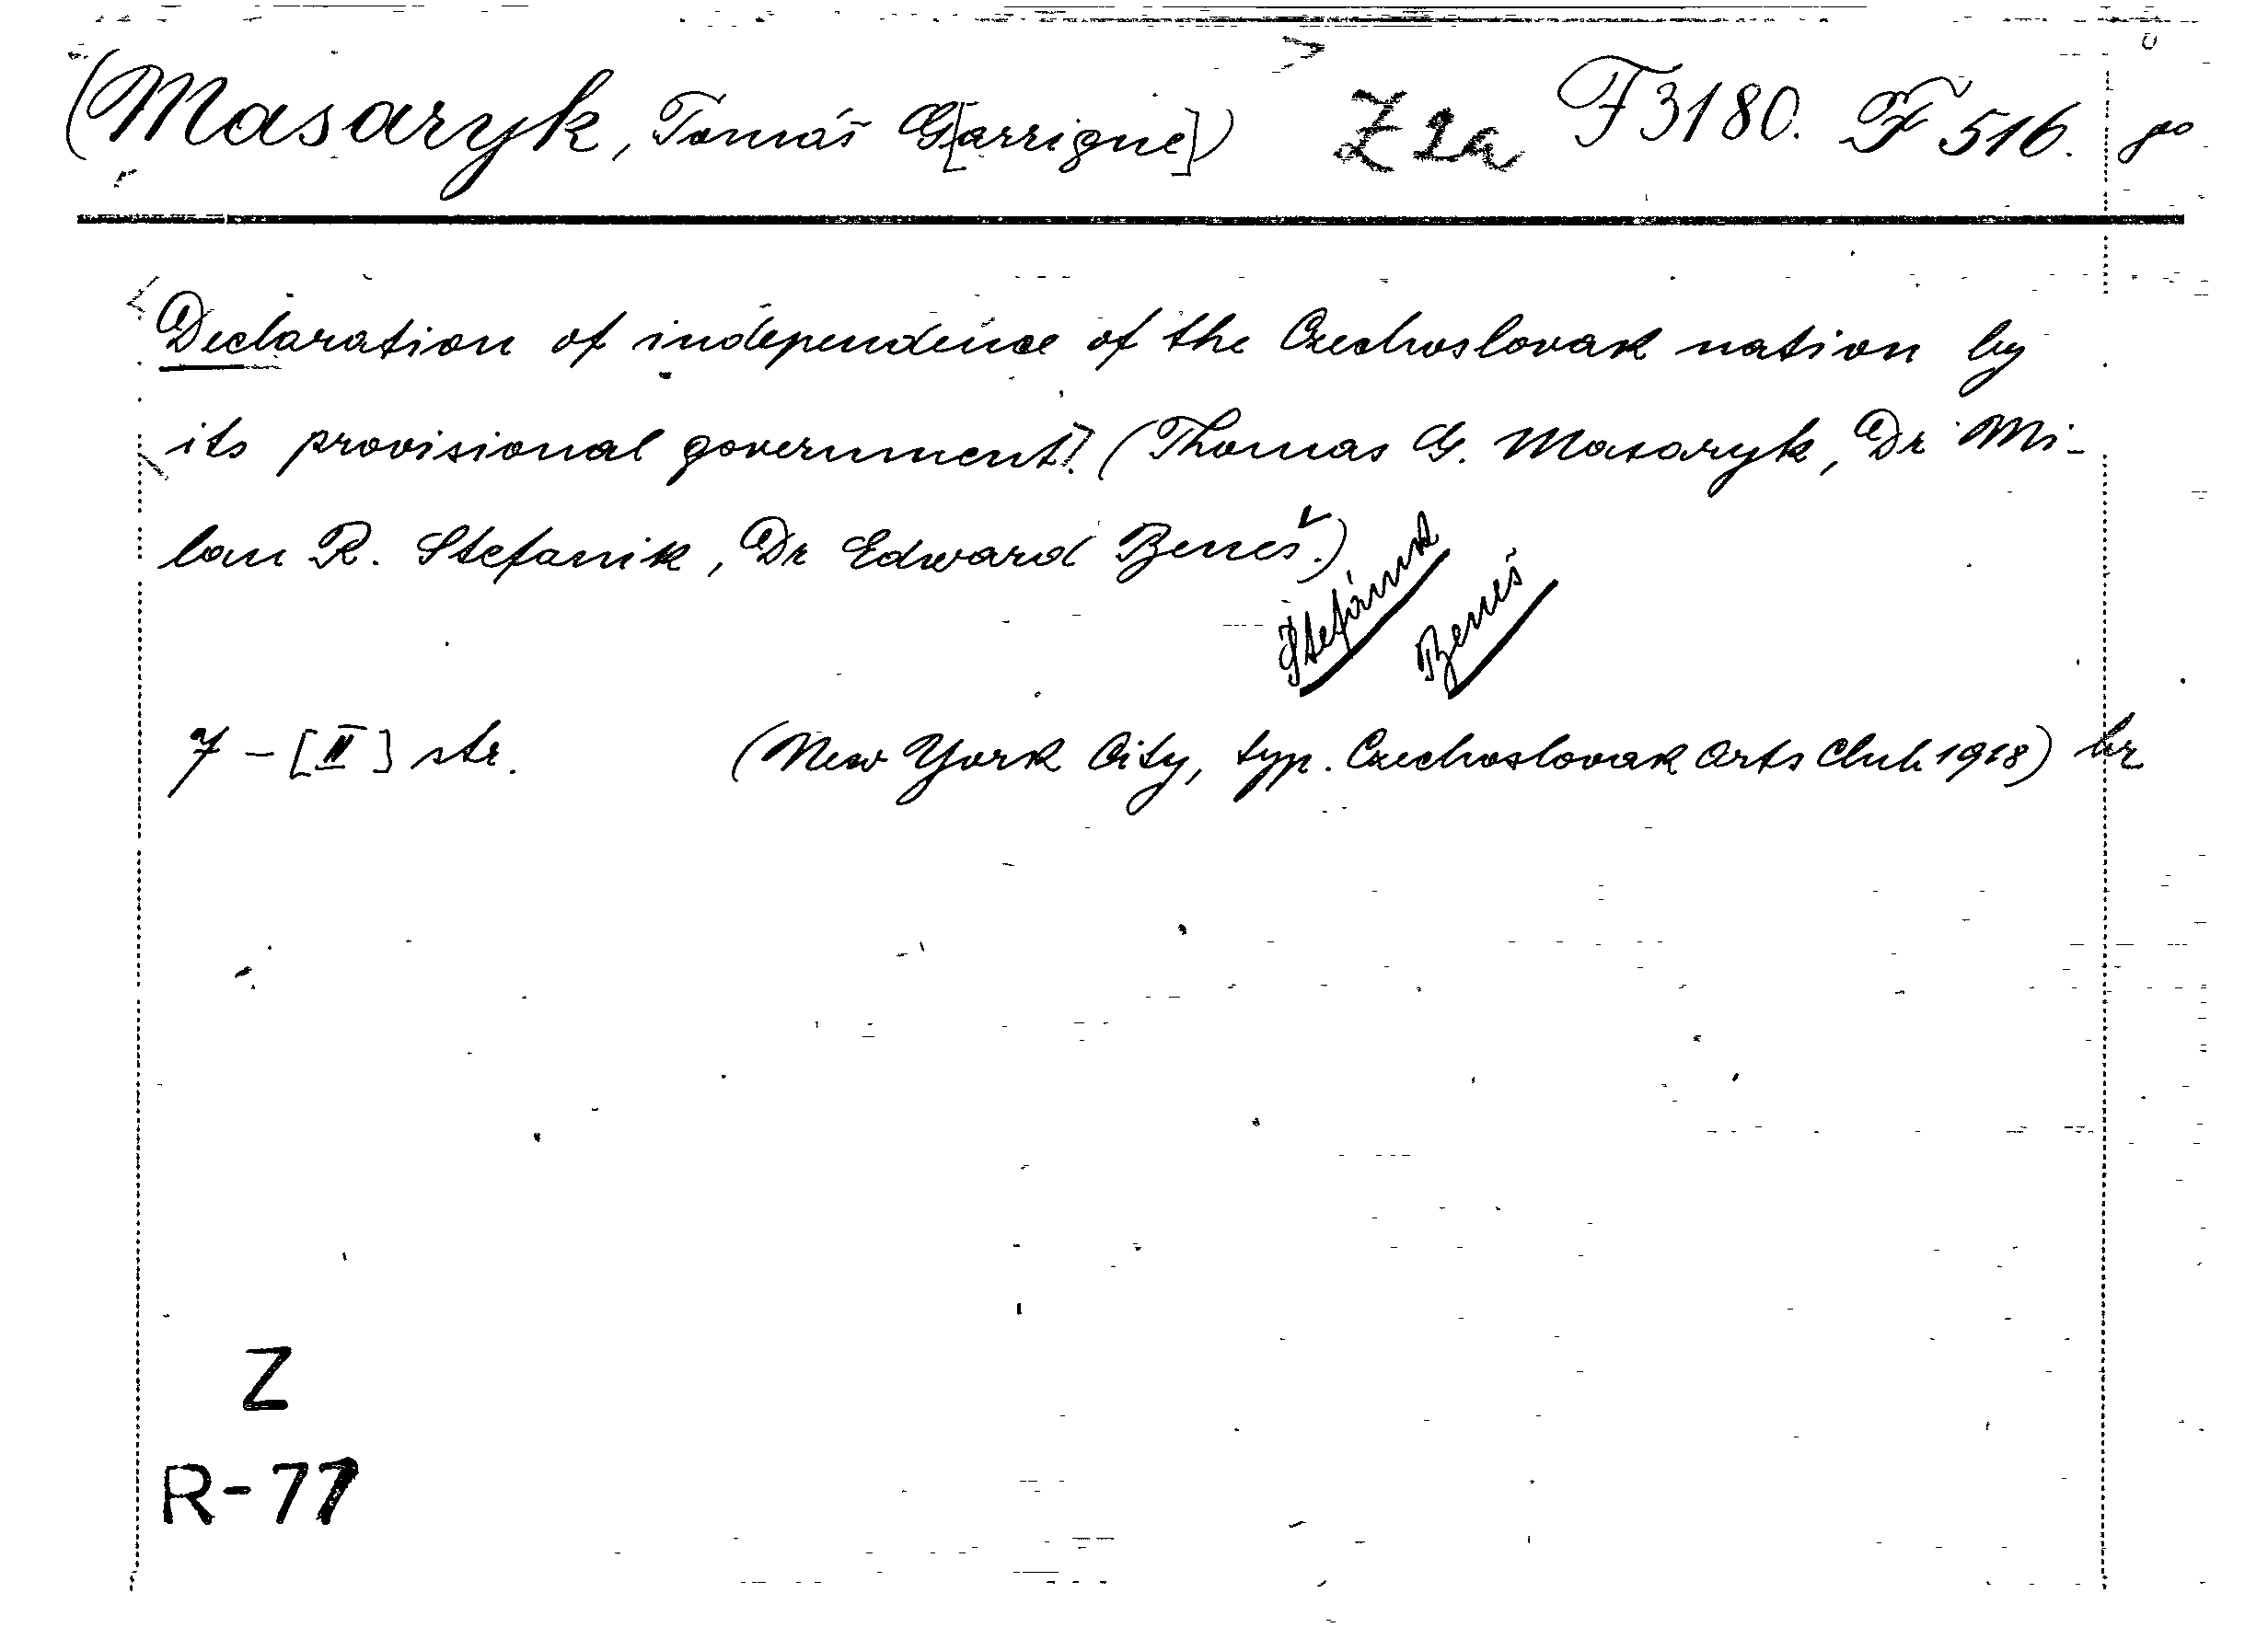 (Masaryk, Tomáš G[arrigue]) Z 2a F 3180. F 516.
Declaration of independence of the Czechoslovak nation by
its provisional government]. (Thomas G. Masaryk, Dr Mi-
lan R. Stefanik, Dr Edward Beneš.)
Štefánik Beneš
7 - [II] str. (New York City, typ. Czechoslovak Arts Club 1918) br
Z
R-77